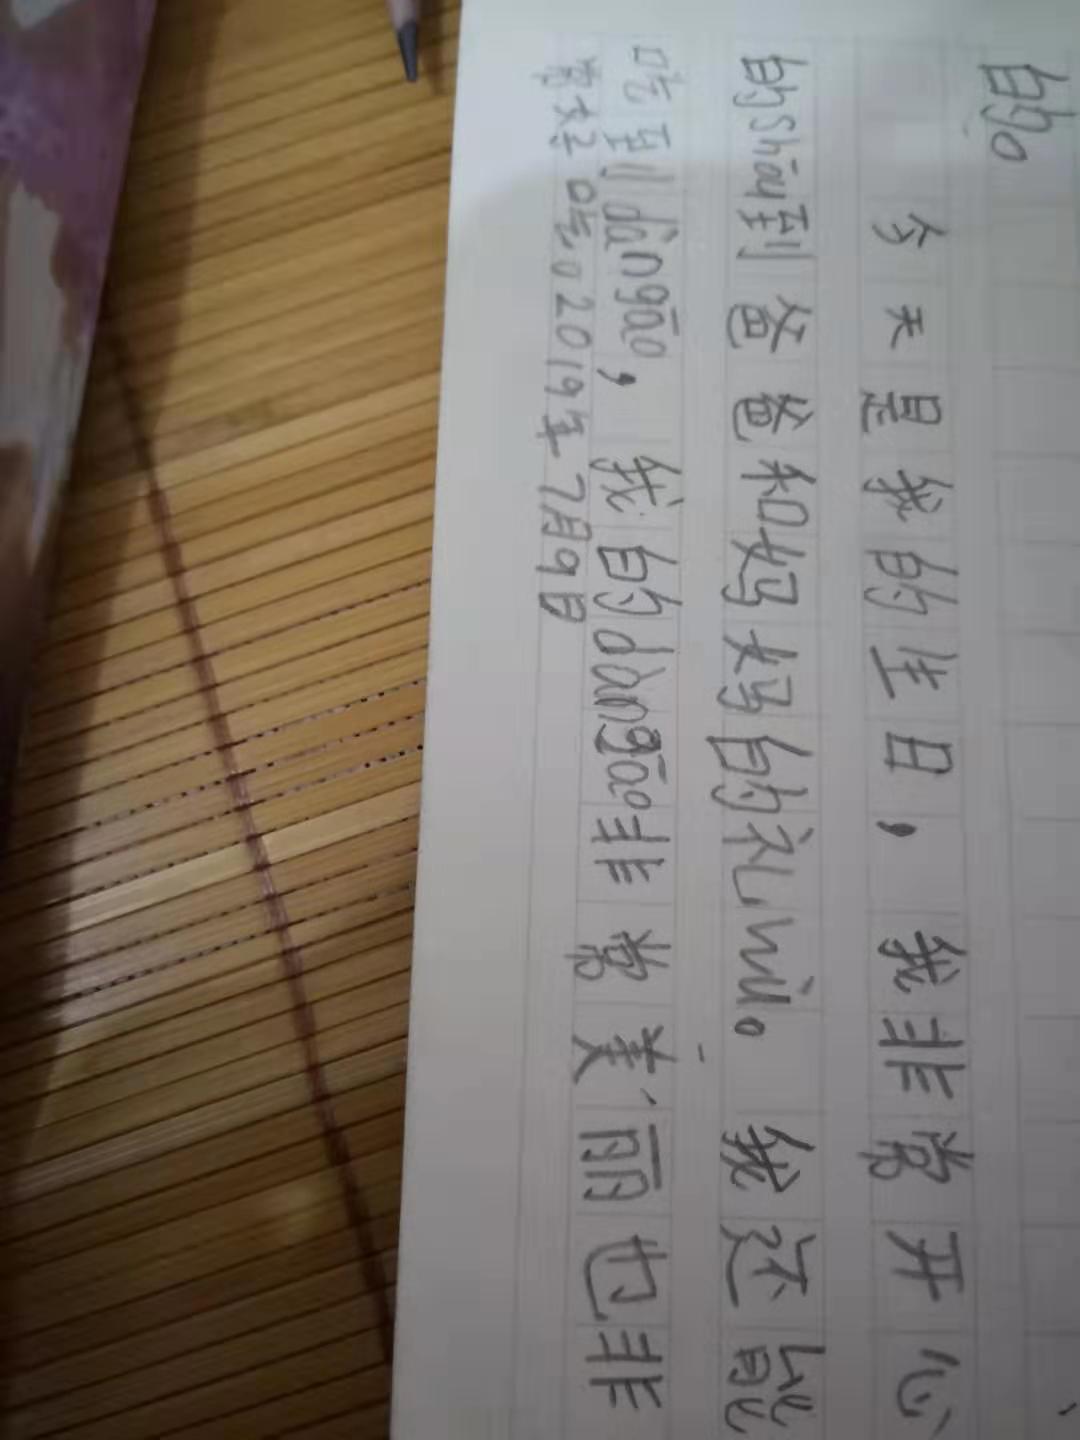 的。
今天是我的生日，我非常开心
的shōu到爸爸和妈妈的礼wù。我还能
吃到dàngāo，我的dàngāo非常美丽也非
常好吃。2019年7月9日